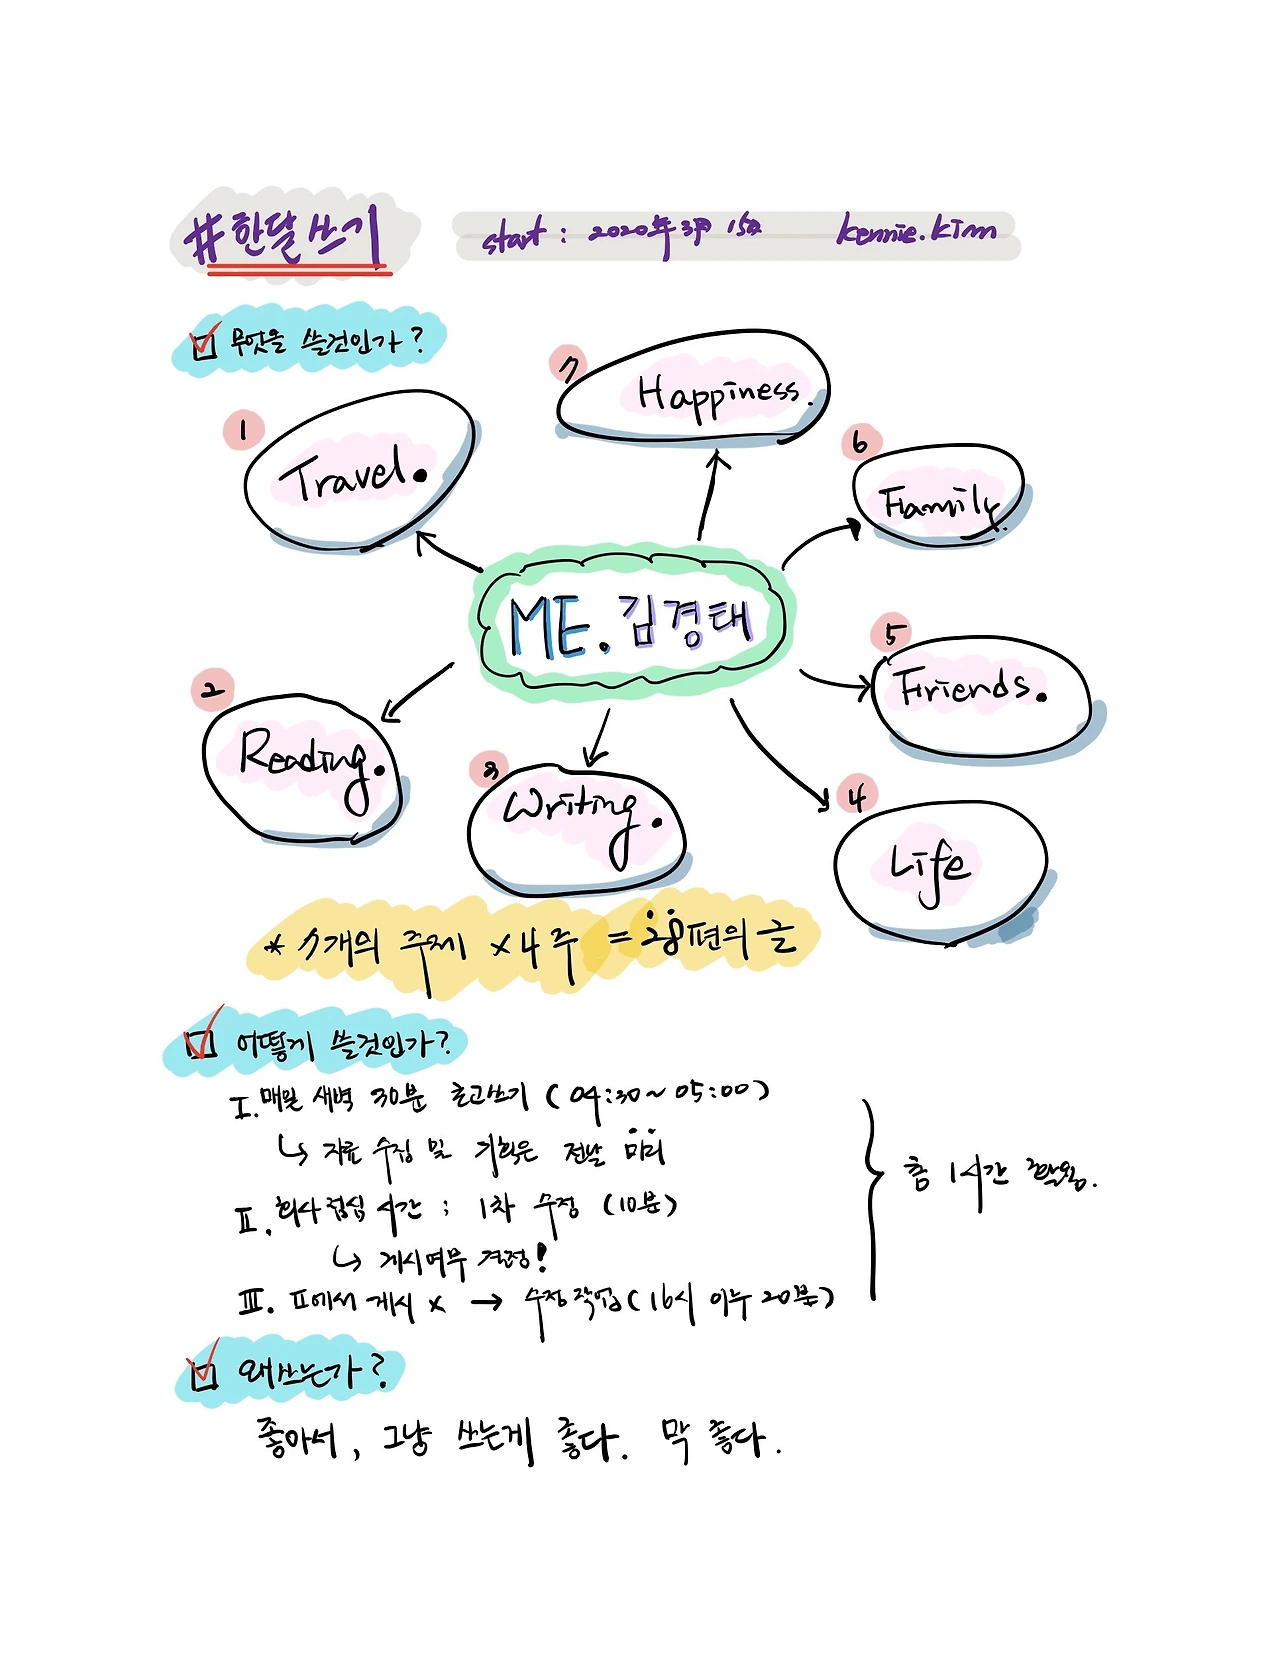 #한달쓰기
start : 2020年 3月 15日 kennie.kim
무엇을 쓸것인가?
7
Happiness.
1
Travel.
6
Family.
ME. 김경태
5
Friends.
2
Reading.
3
Writing.
4
Life
* 7개의 주제 x 4주 = 28편의 글
어떻게 쓸것인가?
I. 매일 새벽 30분 초고쓰기 (04:30~05:00)
↳ 자료 수집 및 기획은 전날 미리
II. 회사 점심 시간 : 1차 수정 (10분)
↳ 게시여부 결정!
III. II에서 게시 x → 수정작업 (16시 이후 20분)
총 1시간 활용.
왜쓰는가?
좋아서, 그냥 쓰는게 좋다. 막 좋다.